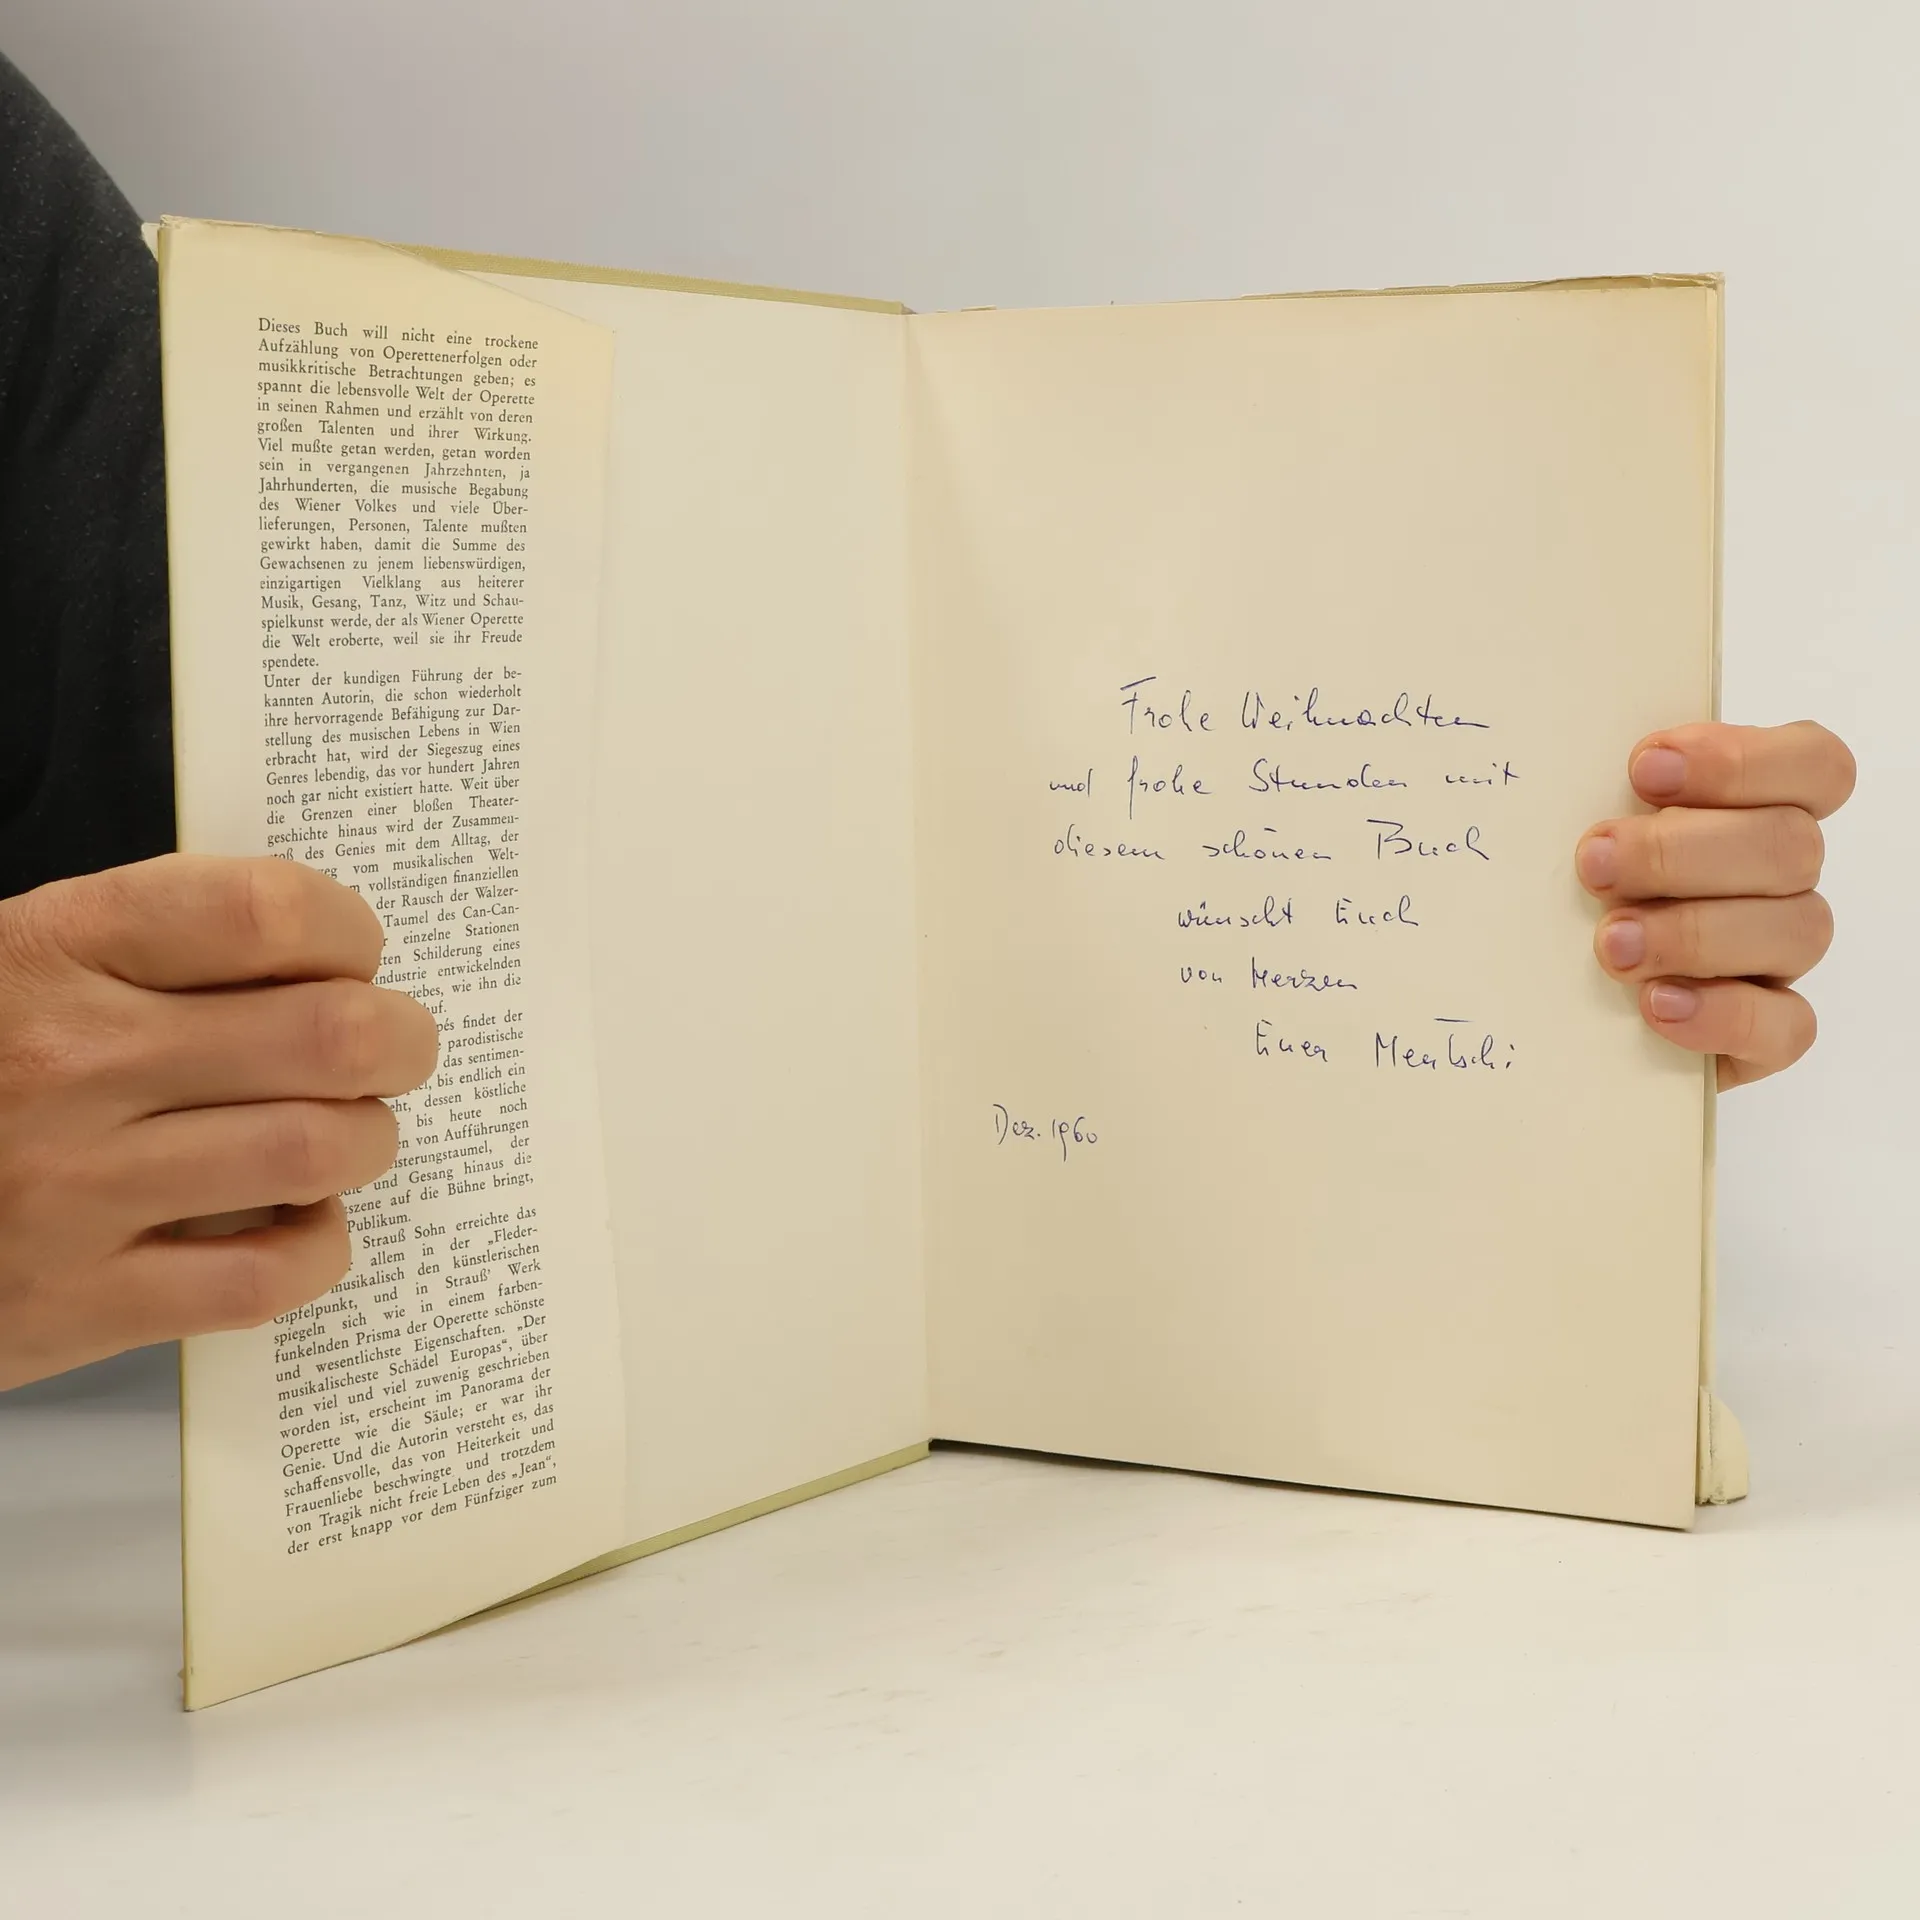 Dieses Buch will nicht eine trockene
Aufzählung von Operettenerfolgen oder
musikkritische Betrachtungen geben; es
spannt die lebensvolle Welt der Operette
in seinen Rahmen und erzählt von deren
großen Talenten und ihrer Wirkung.
Viel mußte getan werden, getan worden
sein in vergangenen Jahrzehnten, ja
Jahrhunderten, die musische Begabung
des Wiener Volkes und viele Über-
lieferungen, Personen, Talente mußten
gewirkt haben, damit die Summe des
Gewachsenen zu jenem liebenswürdigen,
einzigartigen Vielklang aus heiterer
Musik, Gesang, Tanz, Witz und Schau-
spielkunst werde, der als Wiener Operette
die Welt eroberte, weil sie ihr Freude
spendete.
Unter der kundigen Führung der be-
kannten Autorin, die schon wiederholt
ihre hervorragende Befähigung zur Dar-
stellung des musischen Lebens in Wien
erbracht hat, wird der Siegeszug eines
Genres lebendig, das vor hundert Jahren
noch gar nicht existiert hatte. Weit über
die Grenzen einer bloßen Theater-
geschichte hinaus wird der Zusammen-
des Genies mit dem Alltag, der
vom musikalischen Welt-
vollständigen finanziellen
der Rausch der Walzer-
Taumel des Can-Can-
einzelne Stationen
Schilderung eines
industrie entwickelnden
wie ihn die
findet der
parodistische
das sentimen-
bis endlich ein
dessen köstliche
bis heute noch
von Aufführungen
der
und Gesang hinaus die
szene auf die Bühne bringt,
Publikum.
Strauß Sohn erreichte das
allem in der „Fleder-
musikalisch den künstlerischen
Gipfelpunkt, und in Strauß' Werk
spiegeln sich wie in einem farben-
funkelnden Prisma der Operette schönste
und wesentlichste Eigenschaften. „Der
musikalischeste Schädel Europas“, über
den viel und viel zuwenig geschrieben
worden ist, erscheint im Panorama der
Operette wie die Säule; er war ihr
Genie. Und die Autorin versteht es, das
schaffensvolle, das von Heiterkeit und
Frauenliebe beschwingte und trotzdem
von Tragik nicht freie Leben des „Jean“,
der erst knapp vor dem Fünfziger zum
Frohe Weihnachten
und frohe Stunden mit
diesem schönen Buch
wünscht Euch
von Herzen
Euer
Dez. 1960